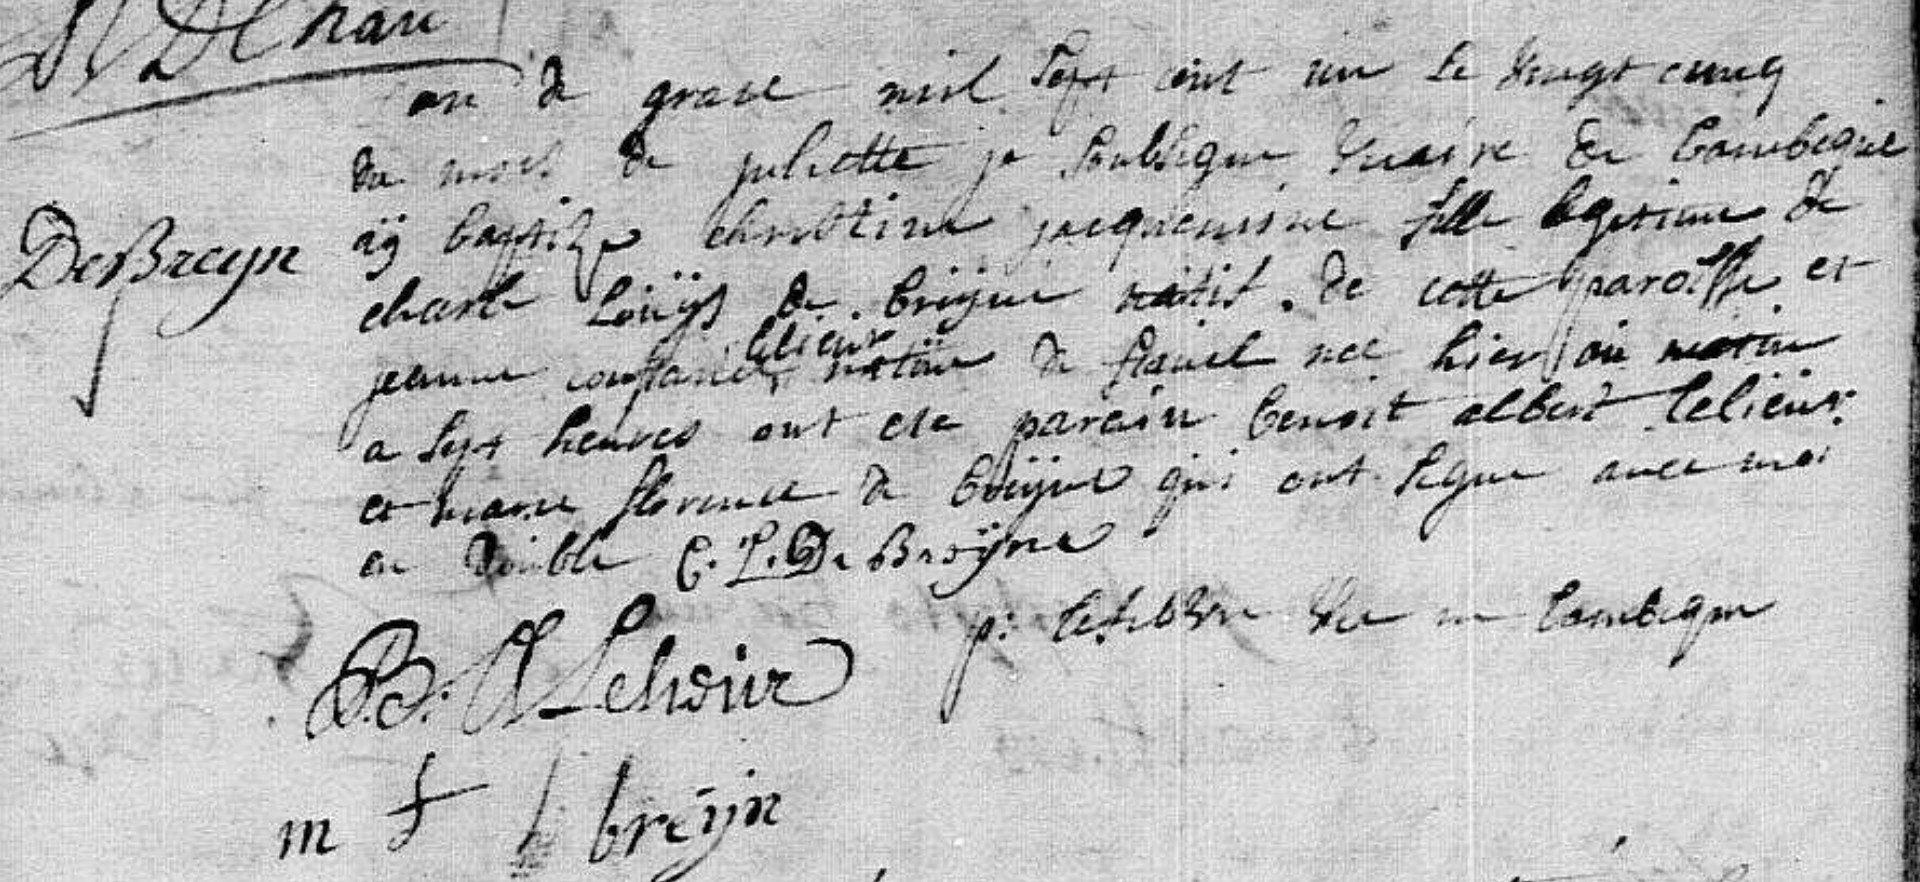 an de grace mil sept cent un le vingt cincq
du mois de juliette je soubsigne vicaire de Cambeque
aÿ baptize christine jacquemine fille legitime de
DeBreyn
charle Louÿs de brüjne natif de cette paroisse et
lelieur
jeanne constance native de nee hier au matin
a sept heures ont ete parein benoit albert lelieur
et marie florence de brüijne qui ont signe avec moi
en double C. L. De Broÿne
p: lefebvre vic in Cambeque
B: A Lelieur
m f d breijn